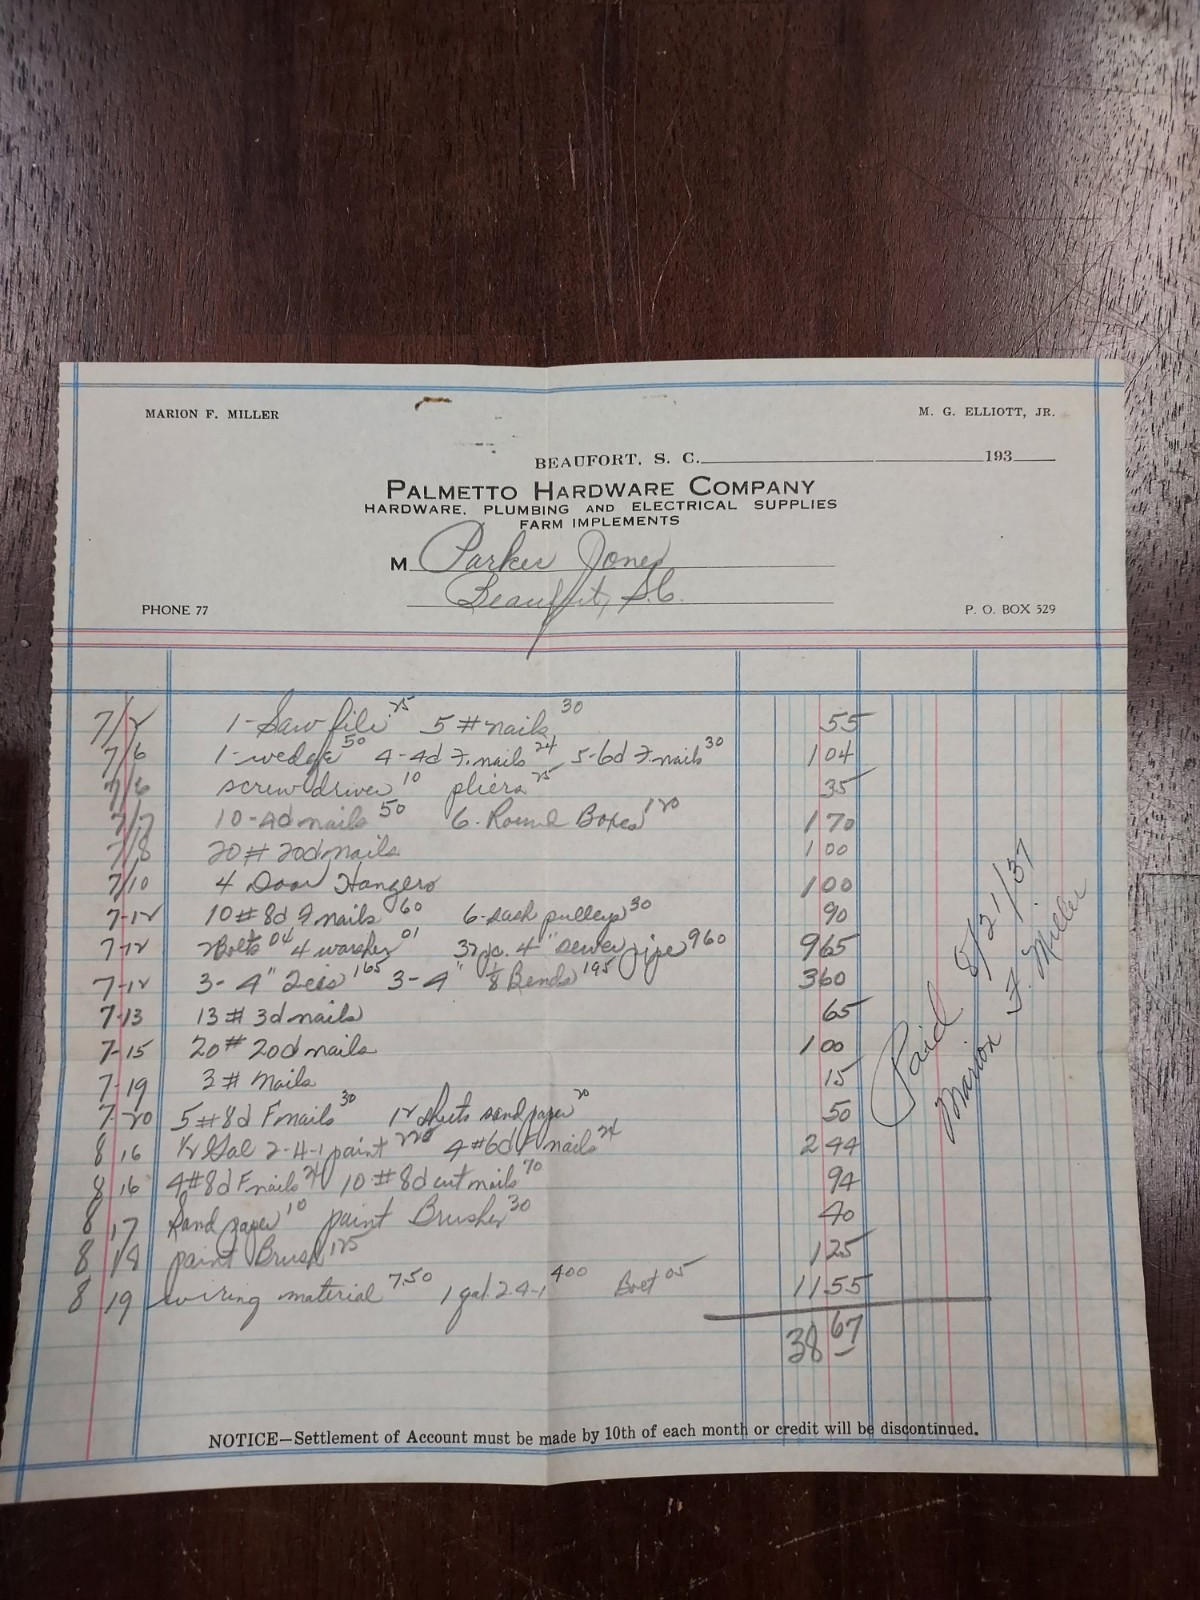 MARION F. MILLER
M. G. ELLIOTT, JR.
BEAUFORT, S. C. 193
PALMETTO HARDWARE COMPANY
HARDWARE, PLUMBING AND ELECTRICAL SUPPLIES
FARM IMPLEMENTS
M Parker Jones
Beaufort, S.C.
PHONE 77
P. O. BOX 529
7/2 1-Saw file 25 5 # nails 30 55
7/6 1-wedge 50 4-4d F. nails 24 5-6d F. nails 30 1 04
7/6 screw driver 10 pliers 25 35
7/7 10-4d nails 50 6-Round Boxes 1 20 1 70
7/8 20# 20d nails 1 00
7/10 4 Door Hangers 1 00
7-12 10#8d F nails 60 6-sash pulleys 30 90
7-12 2 Bolts 04 4 washer 01 32 pc. 4" sewer pipe 960 965
7-12 3-4" 165 3-4" 1/8 Bends 195 360
7-13 13 # 3d nails 65
7-15 20# 20d nails 1 00
7-19 3# nails 15
7-20 5#8d F nails 30 12 sheets sand paper 20 50
8 16 1/2 Gal 2-4-1 paint 220 4#6d F nails 24 2 44
8 16 4#8d F nails 24 10 #8d cut nails 70 94
8 17 Sand paper 10 paint Brushes 30 40
8 18 paint Brush 125 1 25
8 19 wiring material 7.50 1 gal. 2-4-1 400 05 11 55
38 67
Paid 8/21/37
Marion F. Miller
NOTICE—Settlement of Account must be made by 10th of each month or credit will be discontinued.